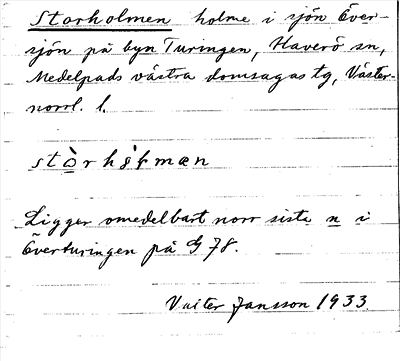 Storholmen holme i sjön Över-
sjön på byn Turingen, Haverö sn,
Medelpads västra domsagas tg, Väster-
norrl. l.
Ligger omedelbart norr siste n i
Överturingen på G 78.
Valter Jansson 1933